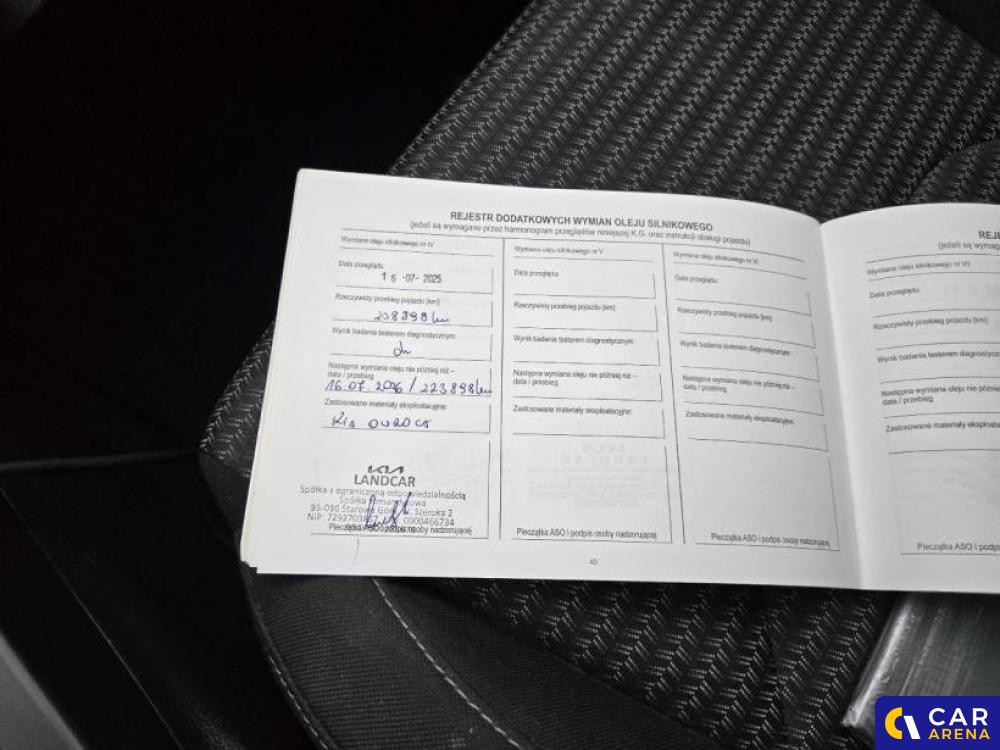 REJESTR DODATKOWYCH WYMIAN OLEJU SILNIKOWEGO
(jeżeli są wymagane przez harmonogram przeglądów niniejszej K.G. oraz instrukcji obsługi pojazdu)
Wymiana oleju silnikowego nr IV
Data przeglądu:
16 -07- 2025
Rzeczywisty przebieg pojazdu [km]:
208898 km
Wynik badania testerem diagnostycznym:
Następna wymiana oleju nie później niż –
data / przebieg
16.07.2026 / 223898 km
Zastosowane materiały eksploatacyjne:
KIA
KIA
LANDCAR
Spółka z ograniczoną odpowiedzialnością
Spółka Komandytowa
95-030 Starowa Szeroka 2
NIP: 0000466734
Pieczątka ASO i podpis osoby nadzorującej
Wymiana oleju silnikowego nr V
Data przeglądu:
Rzeczywisty przebieg pojazdu [km]:
Wynik badania testerem diagnostycznym:
Następna wymiana oleju nie później niż –
data / przebieg
Zastosowane materiały eksploatacyjne:
Pieczątka ASO i podpis osoby nadzorującej
Wymiana oleju silnikowego nr VI
Data przeglądu:
Rzeczywisty przebieg pojazdu [km]:
Wynik badania testerem diagnostycznym:
Następna wymiana oleju nie później niż –
data / przebieg
Zastosowane materiały eksploatacyjne:
Pieczątka ASO i podpis osoby nadzorującej
40
REJE
(jeżeli są wymaga
Wymiana oleju silnikowego nr VII
Data przeglądu:
Rzeczywisty przebieg pojazdu [km]:
Wynik badania testerem diagnostyczn
Następna wymiana oleju nie później niż –
data / przebieg
Zastosowane materiały eksploatacyjne:
Pieczątka ASO i podp
CAR
ARENA